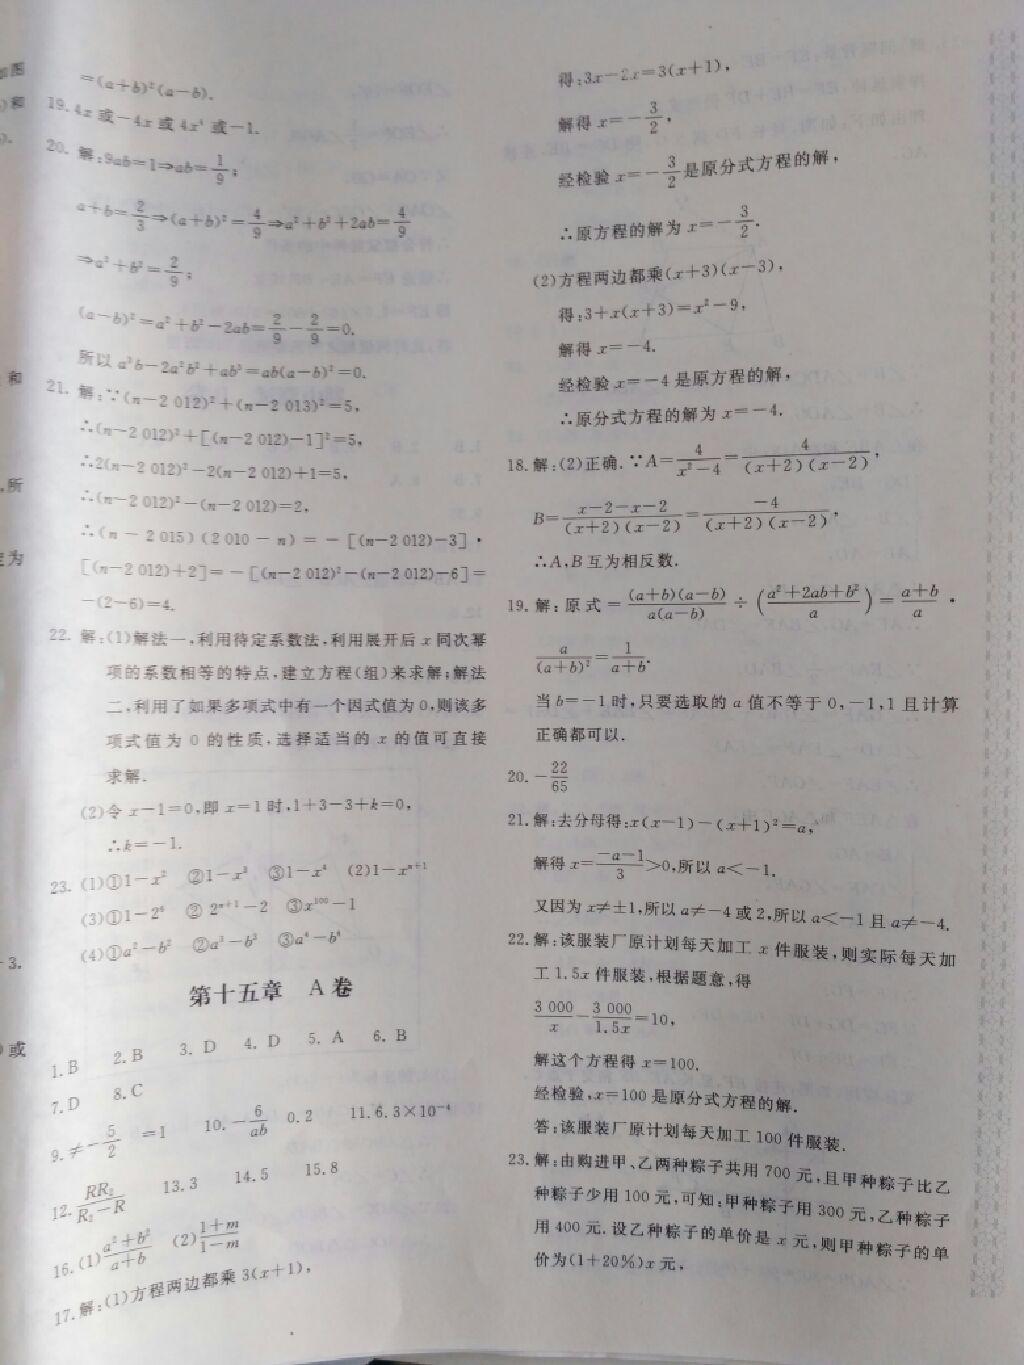 =(a+b)²(a-b).
19. 4x 或-4x 或 4x⁴ 或-1.
20. 解:9ab=1⇒ab=1/9;
a+b=2/3⇒(a+b)²=4/9⇒a²+b²+2ab=4/9
⇒a²+b²=2/9;
(a-b)²=a²+b²-2ab=2/9-2/9=0.
所以 a³b-2a²b²+ab³=ab(a-b)²=0.
21. 解:∵(n-2 012)²+(n-2 013)²=5,
∴(n-2 012)²+[(n-2 012)-1]²=5,
∴2(n-2 012)²-2(n-2 012)+1=5,
∴(n-2 012)²-(n-2 012)=2,
∴(n-2 015)(2 010-n)=-[(n-2 012)-3]·
[(n-2 012)+2]=-[(n-2 012)²-(n-2 012)-6]=
-(2-6)=4.
22. 解:(1)解法一,利用待定系数法,利用展开后 x 同次幂
项的系数相等的特点,建立方程(组)来求解;解法
二,利用了如果多项式中有一个因式值为 0,则该多
项式值为 0 的性质,选择适当的 x 的值可直接
求解.
(2)令 x-1=0,即 x=1 时,1+3-3+k=0,
∴k=-1.
23. (1)①1-x² ②1-x³ ③1-x⁴ (2)1-xⁿ⁺¹
(3)①1-2⁶ ②2ⁿ⁺¹-2 ③x¹⁰⁰-1
(4)①a²-b² ②a³-b³ ③a⁴-b⁴
第十五章 A 卷
1. B 2. B 3. D 4. D 5. A 6. B
7. D 8. C
9. ≠-5/2 =1 10. -6/ab 0.2 11. 6.3×10⁻⁴
12. RR₂/(R₂-R) 13. 3 14. 5 15. 8
16. (1)(a²+b²)/(a+b) (2)(1+m)/(1-m)
17. 解:(1)方程两边都乘 3(x+1),
得:3x-2x=3(x+1),
解得 x=-3/2,
经检验 x=-3/2 是原分式方程的解,
∴原方程的解为 x=-3/2.
(2)方程两边都乘(x+3)(x-3),
得:3+x(x+3)=x²-9,
解得 x=-4.
经检验 x=-4 是原方程的解,
∴原分式方程的解为 x=-4.
18. 解:(2)正确.∵A=4/(x²-4)=4/((x+2)(x-2)),
B=(x-2-x-2)/((x+2)(x-2))=-4/((x+2)(x-2)),
∴A,B 互为相反数.
19. 解:原式=(a+b)(a-b)/(a(a-b))÷((a²+2ab+b²)/a)=(a+b)/a·
a/(a+b)²=1/(a+b).
当 b=-1 时,只要选取的 a 值不等于 0,-1,1 且计算
正确都可以.
20. -22/65
21. 解:去分母得:x(x-1)-(x+1)²=a,
解得 x=(-a-1)/3>0,所以 a<-1.
又因为 x≠±1,所以 a≠-4 或 2,所以 a<-1 且 a≠-4.
22. 解:该服装厂原计划每天加工 x 件服装,则实际每天加
工 1.5x 件服装,根据题意,得
3 000/x-3 000/1.5x=10,
解这个方程得 x=100.
经检验,x=100 是原分式方程的解.
答:该服装厂原计划每天加工 100 件服装.
23. 解:由购进甲、乙两种粽子共用 700 元,且甲种粽子比乙
种粽子少用 100 元,可知:甲种粽子用 300 元,乙种粽子
用 400 元.设乙种粽子的单价是 x 元,则甲种粽子的单
价为(1+20%)x 元,